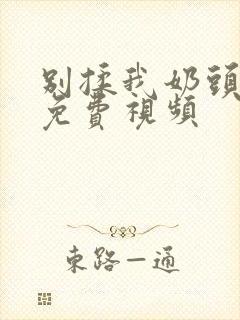 别揉我奶頭
免費視頻
东路一通